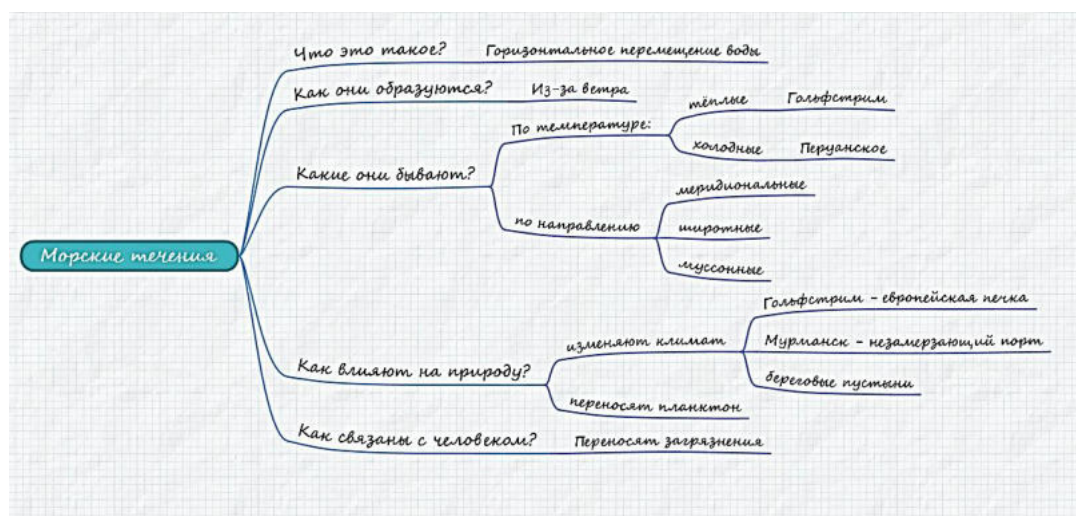 Что это такое? Горизонтальное перемещение воды
Как они образуются? Из-за ветра
Какие они бывают?
По температуре:
тёплые Гольфстрим
холодные Перуанское
по направлению
меридиональные
широтные
муссонные
Морские течения
Как влияют на природу?
изменяют климат
Гольфстрим - европейская печка
Мурманск - незамерзающий порт
береговые пустыни
переносят планктон
Как связаны с человеком? Переносят загрязнения